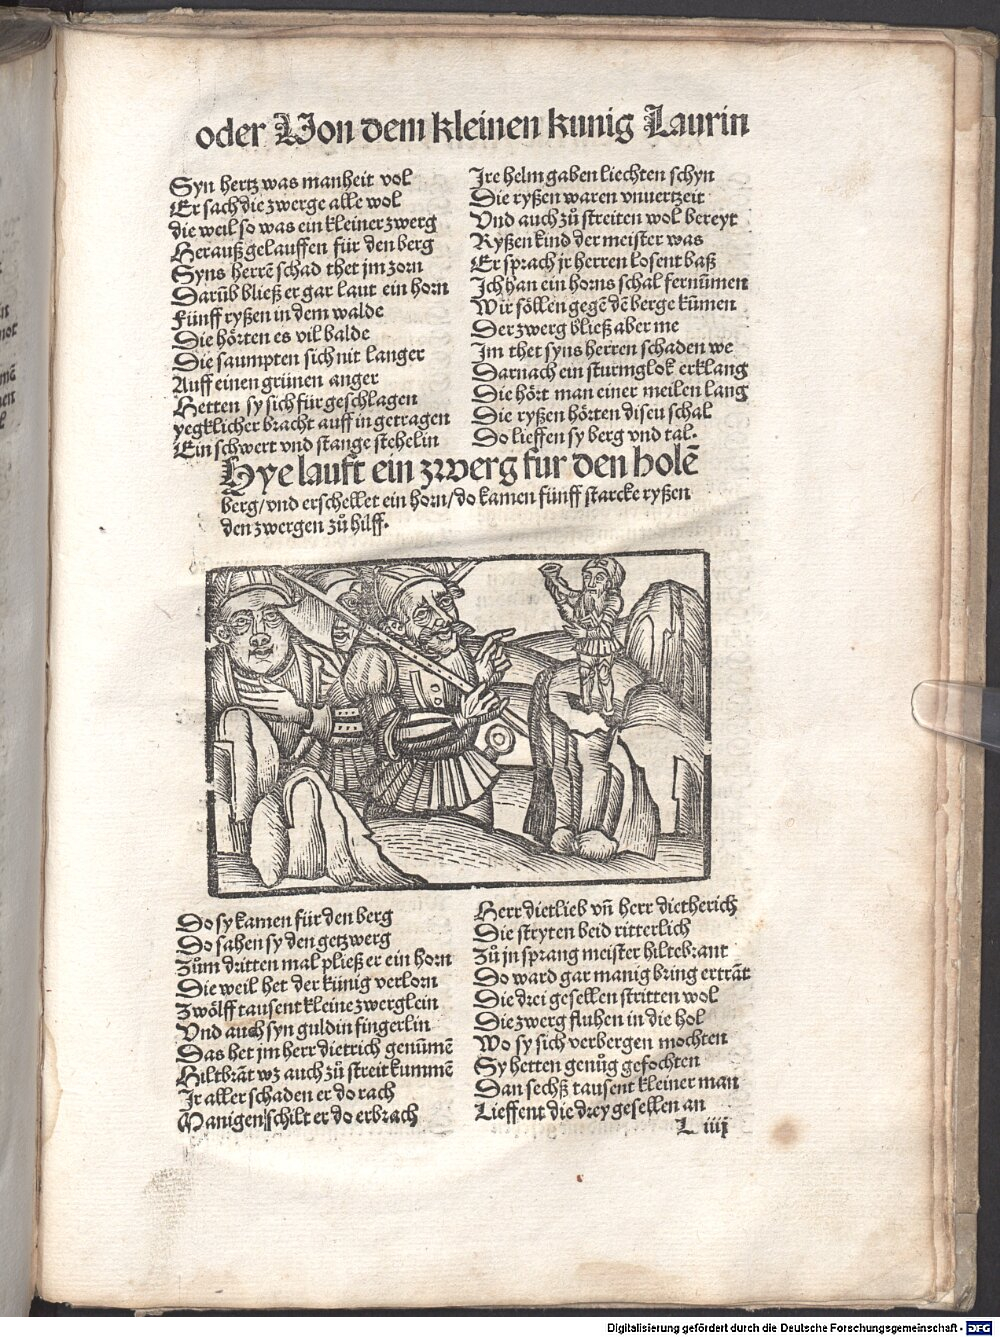 oder Von dem kleinen kunig Laurin
Syn hertz was manheit vol
Er sach die zwerge alle wol
die weil so was ein kleiner zwerg
Herauß gelauffen für den berg
Syns herrē schad thet jm zorn
Darūb bließ er gar laut ein horn
Fünff ryßen in dem walde
Die hörten es vil balde
Die saumpten sich nit langer
Auff einen grünen anger
Hetten sy sich für geschlagen
yegklicher bracht auff in getragen
Ein schwert vnd stange stehelin
Ire helm gaben liechten schyn
Die ryßen waren vnuertzeit
Vnd auch zů streiten wol bereyt
Ryßen kind der meister was
Er sprach jr herren losent baß
Ich han ein horns schal fernūmen
Wir söllen gegē dē berge kūmen
Der zwerg bließ aber me
Im thet syns herren schaden we
Darnach ein sturmglok erklang
Die hört man einer meilen lang
Die ryßen hörten disen schal
Do lieffen sy berg vnd tal.
Hye lauft ein zwerg fur den holē
berg/ vnd erschellet ein horn/ do kamen fünff starcke ryßen
den zwergen zů hilff.
Do sy kamen für den berg
Do sahen sy den getzwerg
Zům dritten mal pließ er ein horn
Die weil het der künig verlorn
Zwölff tausent kleine zwerglein
Vnd auch syn guldin fingerlin
Das het jm herr dietrich genūmē
Hiltbrāt wz auch zů streit kummē
Ir aller schaden er do rach
Manigen schilt er do erbrach
Herr dietlieb vn̄ herr dietherich
Die stryten beid ritterlich
Zů jn sprang meister hiltebrant
Do ward gar manig bring ertrāt
Die drei gesellen stritten wol
Die zwerg fluhen in die hol
Wo sy sich verbergen mochten
Sy hetten genůg gefochten
Dan sechß tausent kleiner man
Lieffent die drey gesellen an
L iiij
Digitalisierung gefördert durch die Deutsche Forschungsgemeinschaft - DFG